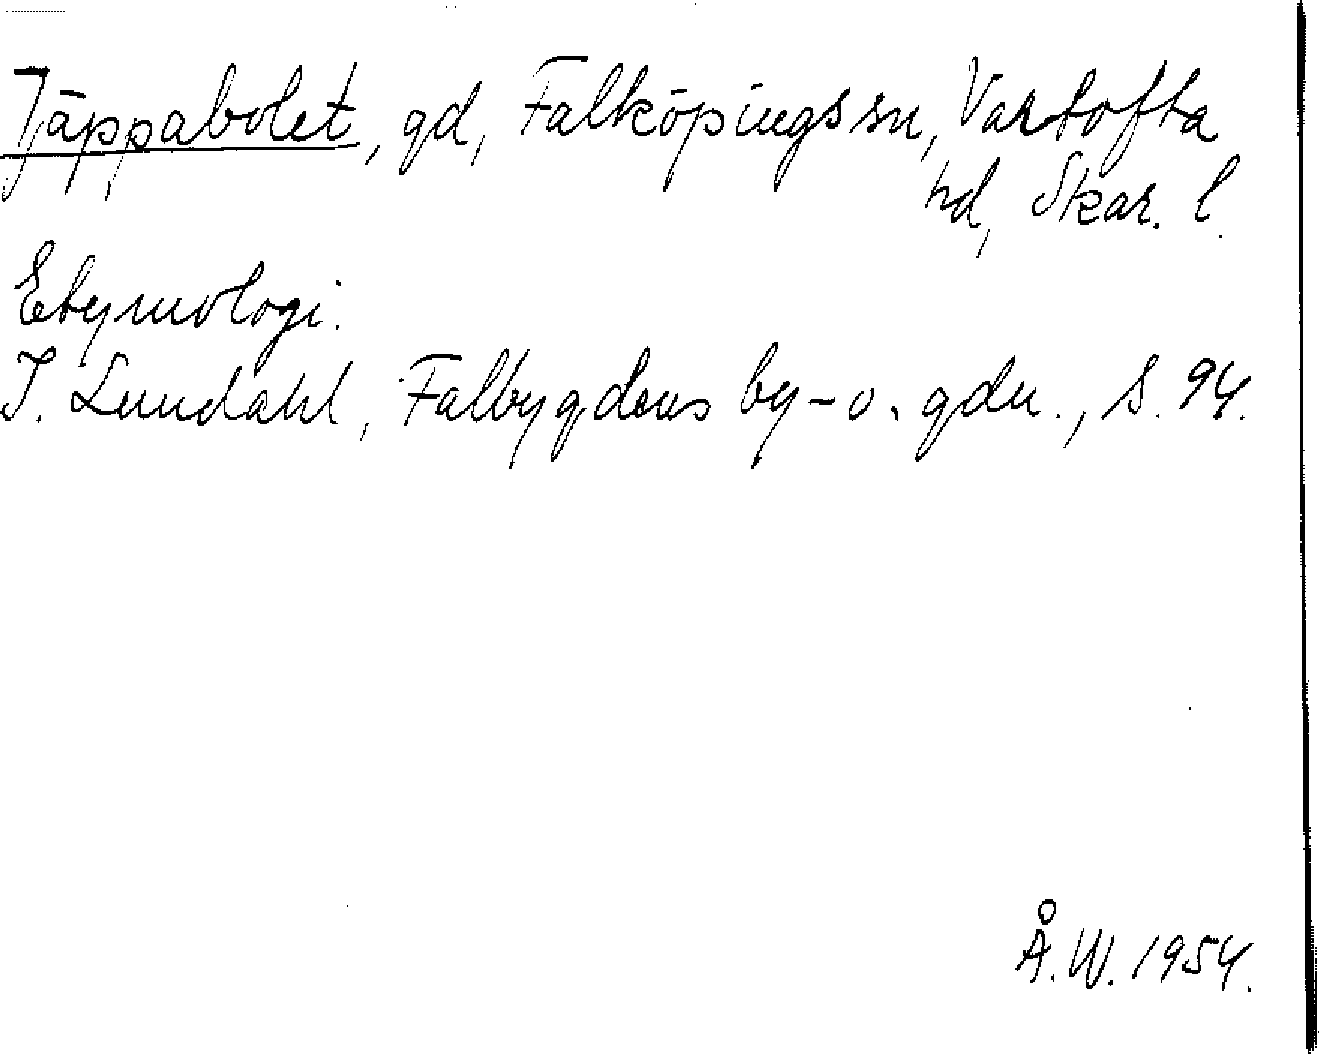 Jäppabolet, gd, Falköpings sn, Vartofta
hd, Skar. l.
Etymologi.
I. Lundahl, Falbygdens by- o. gdn., s. 94.
Å. W. 1954.